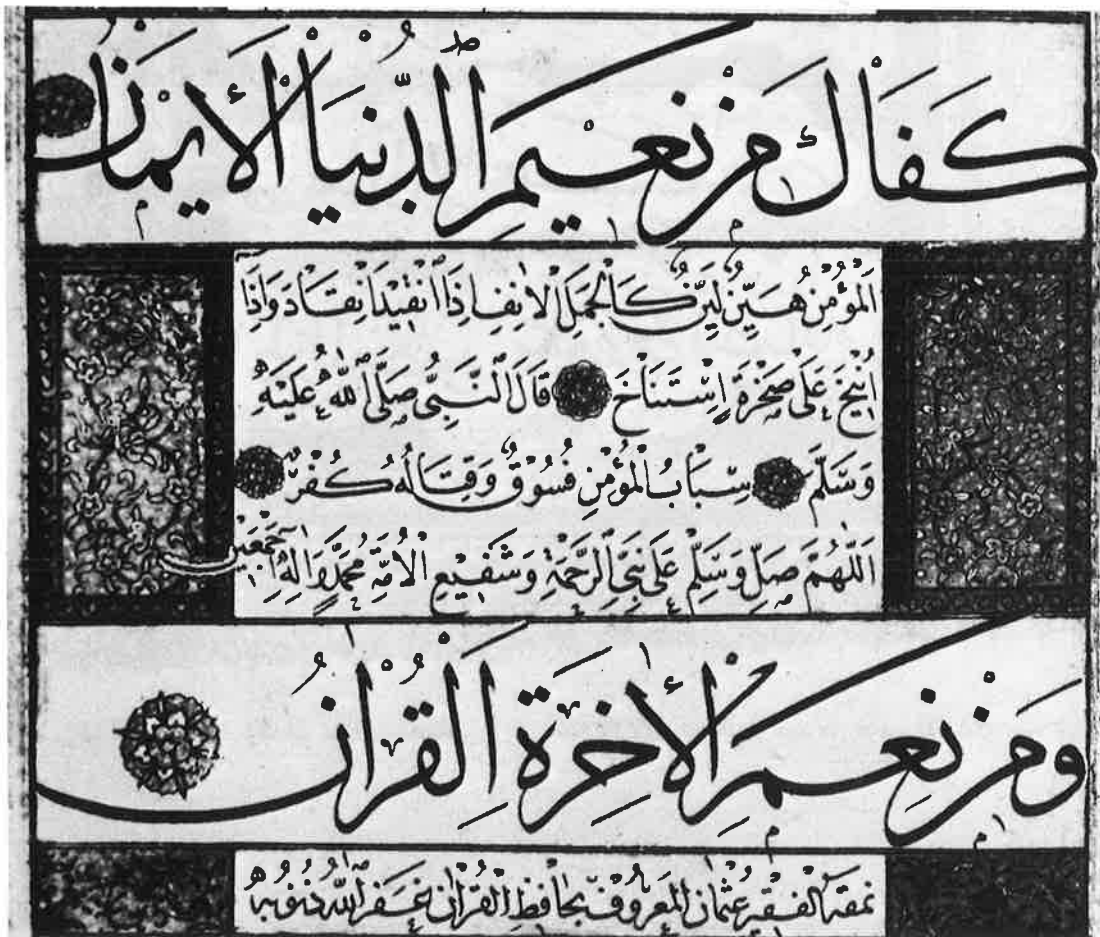 كَفَاكَ مِنْ نَعِيمِ الدُّنْيَا الْأَيمَانُ
اَلْمُؤْمِنُ هَيِّنٌ لَيِّنٌ كَالْجَمَلِ الْاٰنِفِ اِذَا انْقِيدَ انْقَادَ وَاِذَا
اُنِيخَ عَلٰى صَخْرَةٍ اِسْتَنَاخَ قَالَ النَّبِىُّ صَلَّى اللّٰهُ عَلَيْهِ
وَسَلَّمَ سِبَابُ الْمُؤْمِنِ فُسُوْقٌ وَقِتَالُهُ كُفْرٌ
اَللّٰهُمَّ صَلِّ وَسَلِّمْ عَلٰى نَبِىِّ الرَّحْمَةِ وَشَفِيعِ الْاُمَّةِ مُحَمَّدٍ وَاٰلِهِ اَجْمَعِينَ
وَمِنْ نَعِيمِ الْأٰخِرَةِ اَلْقُرْاٰنُ
نمقه الفقير عثمان المعروف بحافظ القرآن غفر الله ذنوبه